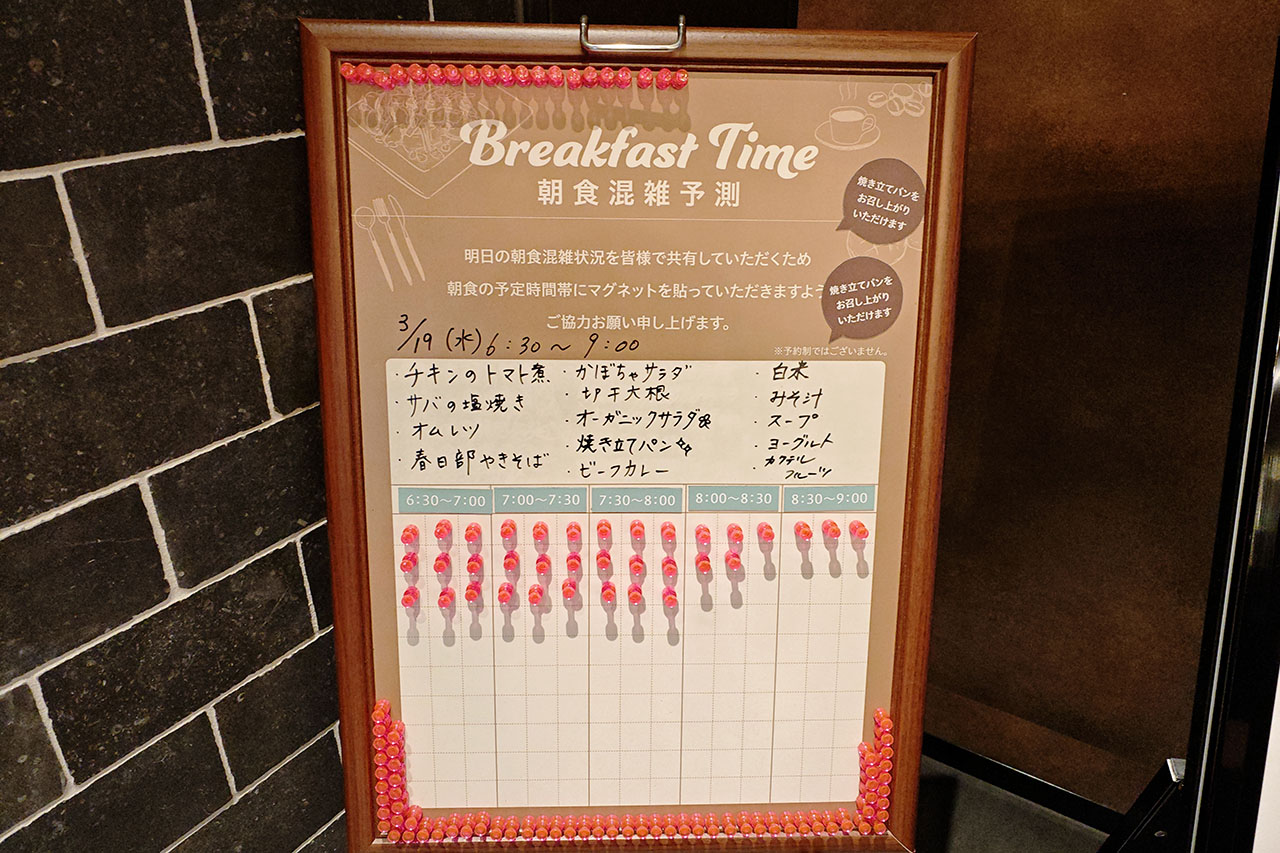 Breakfast Time
朝食混雑予測
焼き立てパンを
お召し上がり
いただけます
明日の朝食混雑状況を皆様で共有していただくため
朝食の予定時間帯にマグネットを貼っていただきますよう
焼き立てパンを
お召し上がり
いただけます
ご協力お願い申し上げます。
※予約制ではございません。
3/19(水)6:30～9:00
・チキンのトマト煮
・サバの塩焼き
・オムレツ
・春日部やきそば
・かぼちゃサラダ
・切干大根
・オーガニックサラダ
・焼き立てパン
・ビーフカレー
・白米
・みそ汁
・スープ
・ヨーグルト
・カクテル
フルーツ
6:30～7:00 7:00～7:30 7:30～8:00 8:00～8:30 8:30～9:00